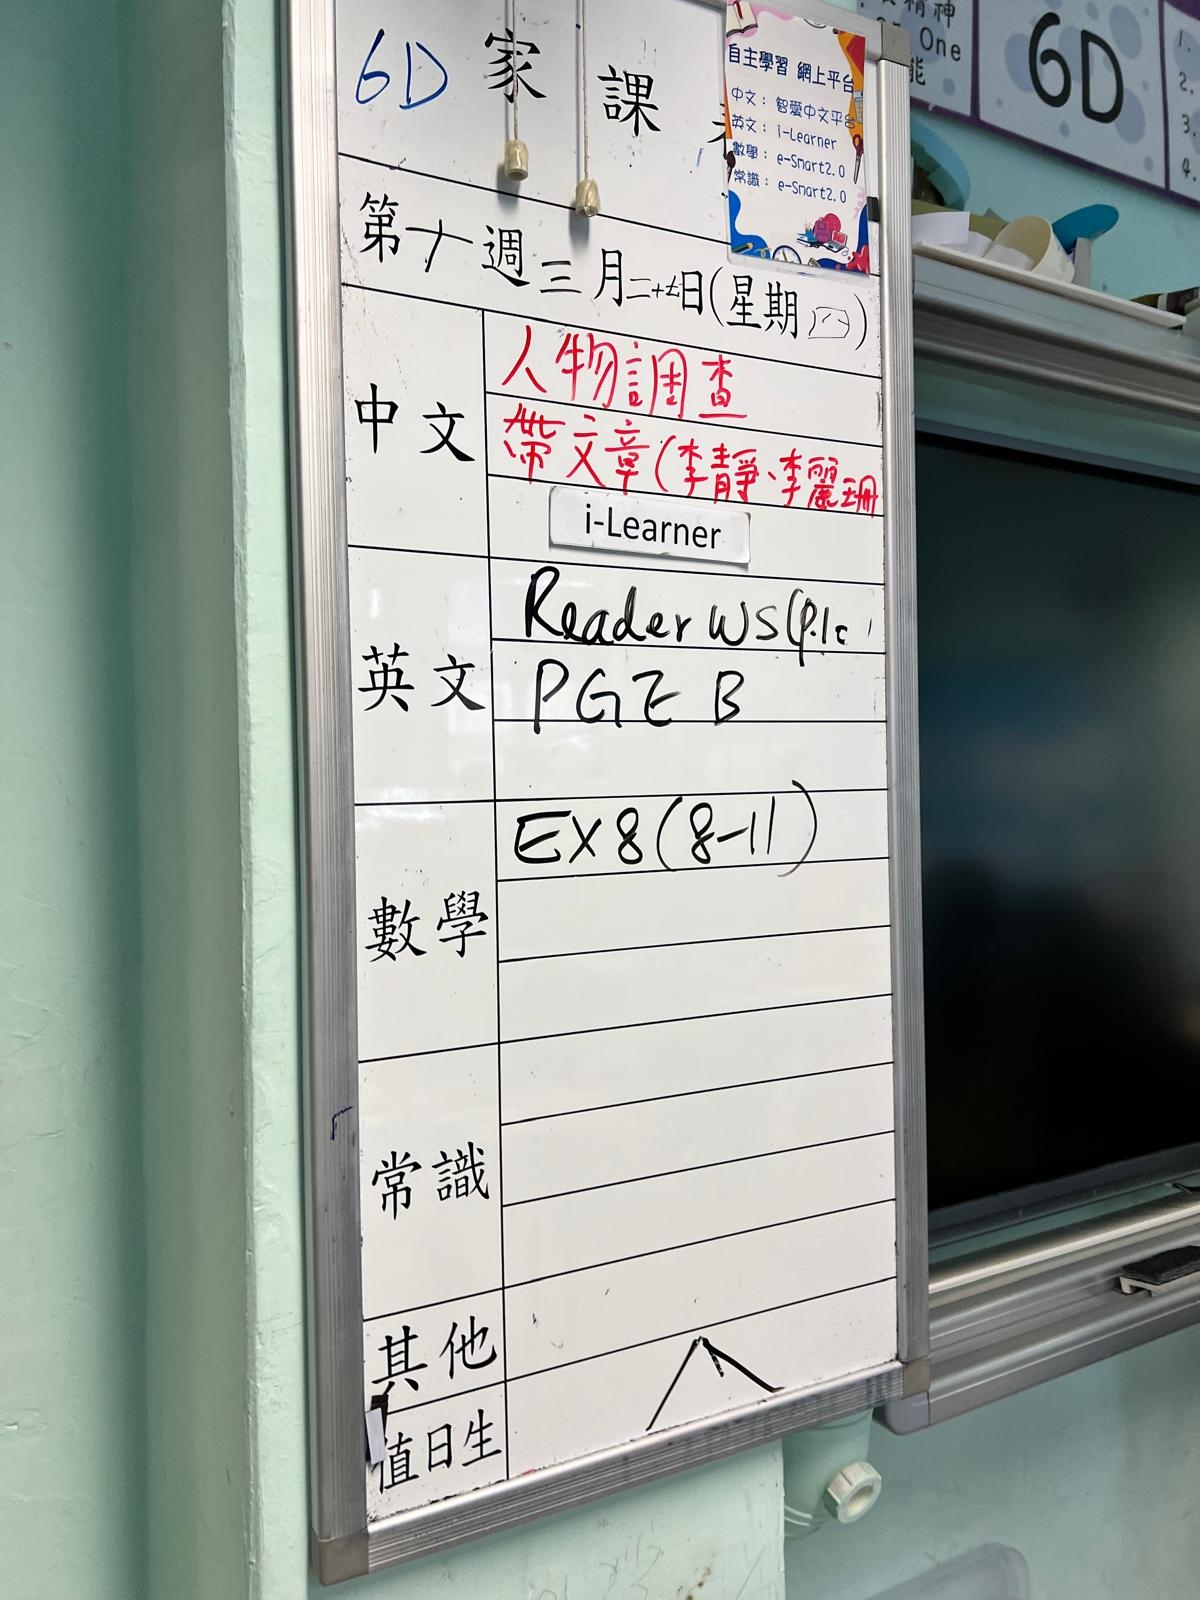 6D 家課
自主學習 網上平台
中文：智愛中文平台
英文：i-Learner
數學：e-Smart2.0
常識：e-Smart2.0
第十週三月二十七日(星期四)
中文
人物調查
帶文章(李靜、李麗珊
i-Learner
英文
Reader WS(P.1c
PGE B
數學
EX 8(8-11)
常識
其他
值日生
精神
One
能
6D
1.
2.
3.
4.